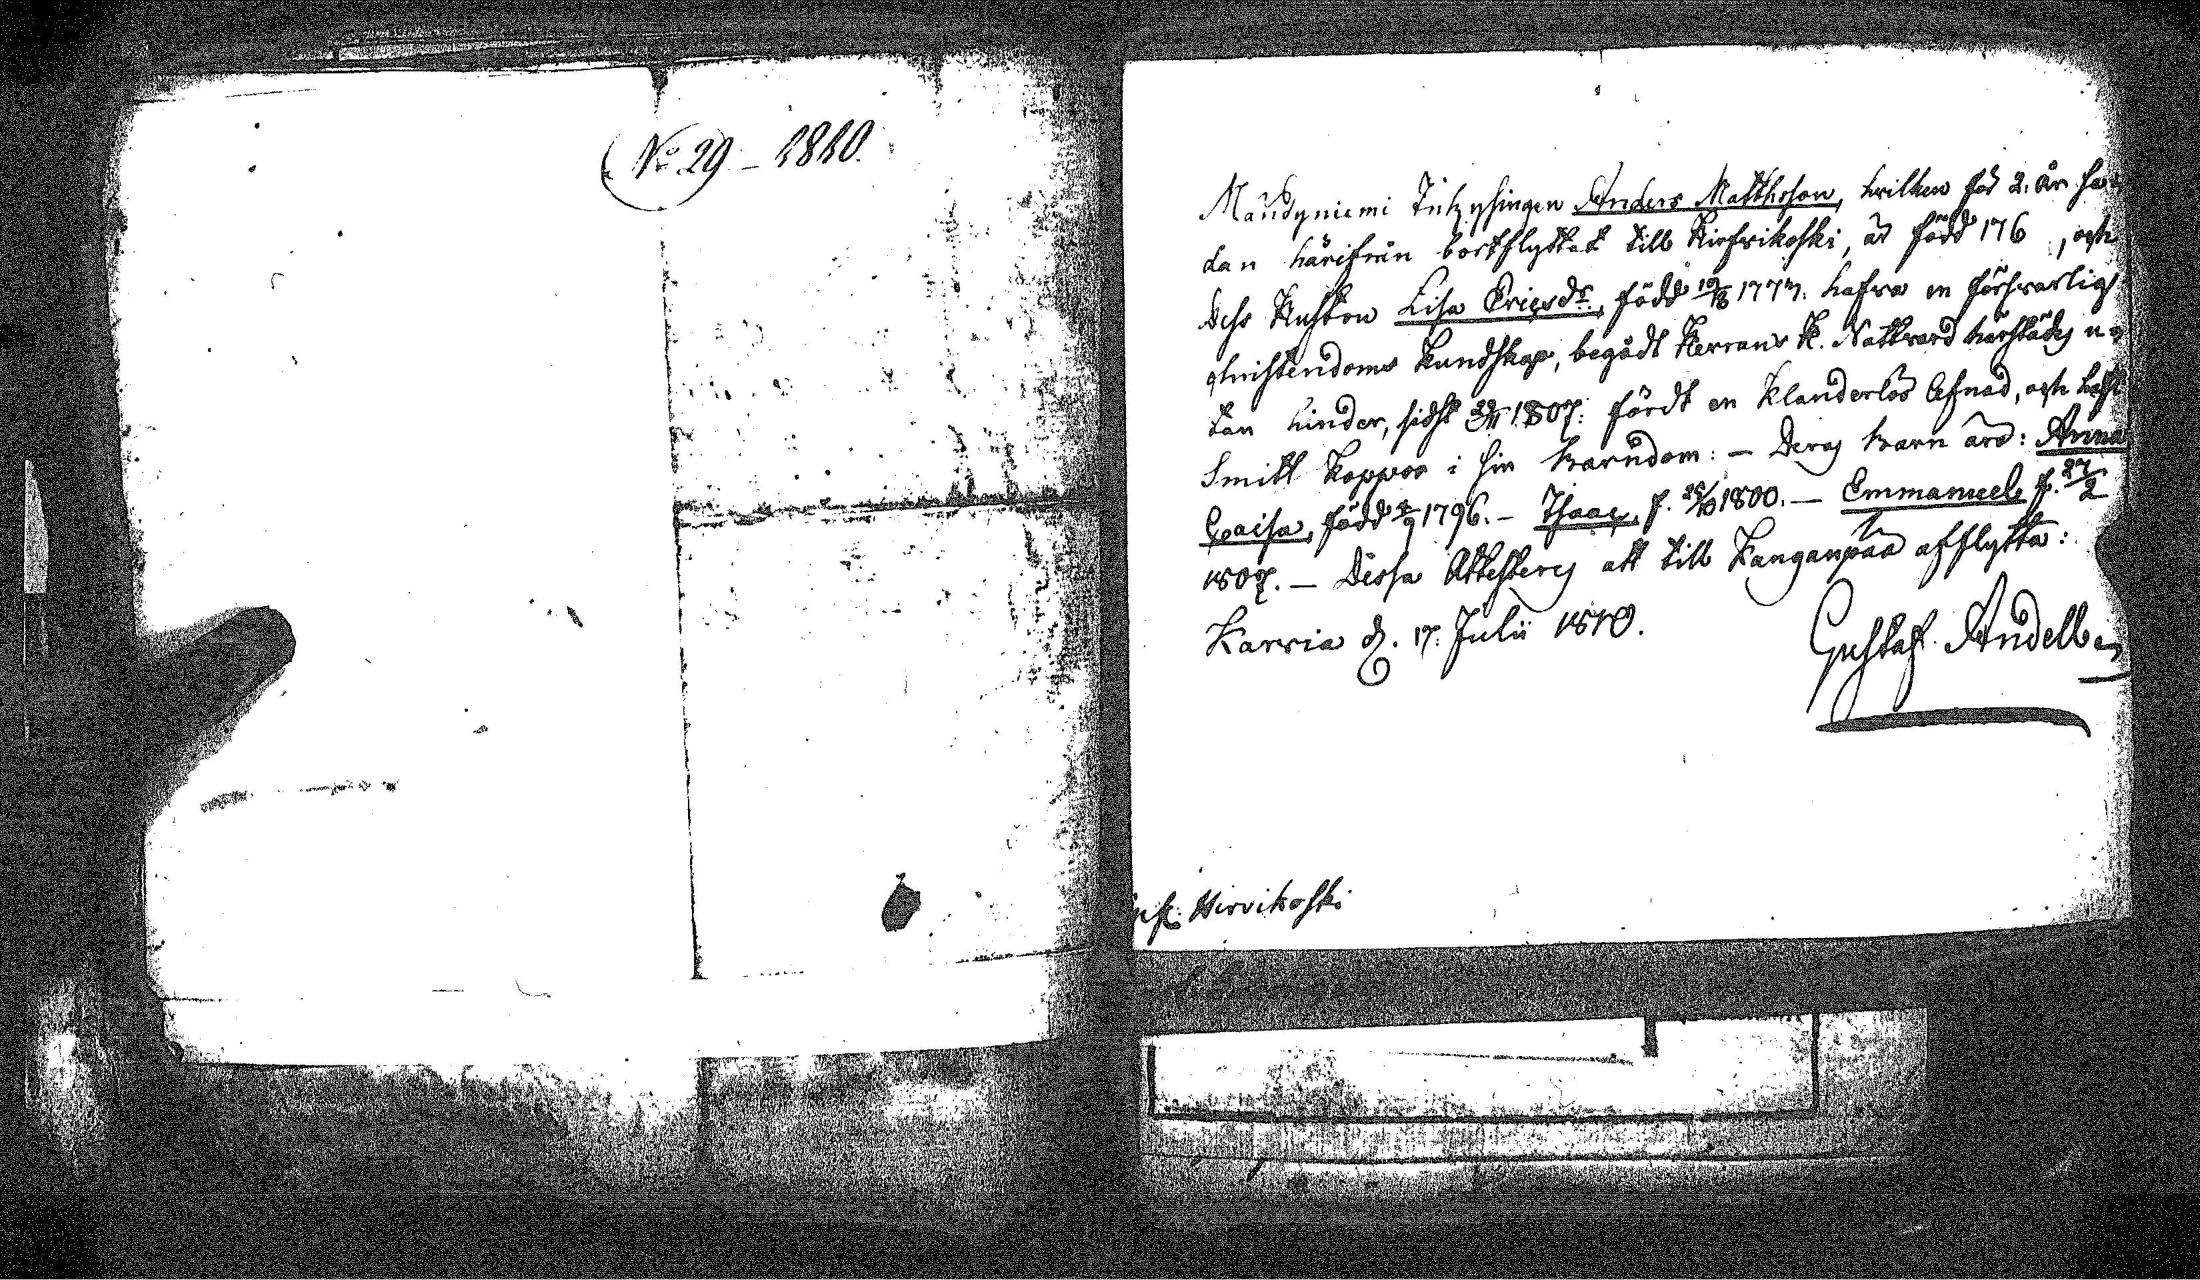 No 29 – 1810.
Maudyniemi Inhysingen Anders Matthsson, hvilken för 2. år se-
dan härifrån bortflyttat till Hirfvikoski, är född 176 , och
dess Hustru Lisa Ericsdr., född 1777. hafva en försvarlig
christendoms kundskap, begådt Herrans H. Nattvard härstädes u-
tan hinder, sidst 1807. fördt en klanderlös lefnad, och haft
Smitt koppor i sin barndom: – Deras barn äro: Anna
Caisa, född 1796. – Isaac, f. 1800. – Emmanuel f. 27/2
1807. – Dessa attesteras att till Kanganpää afflytta:
Karvia d. 17. Julii 1810.
Gustaf Andell
Hirvikoski